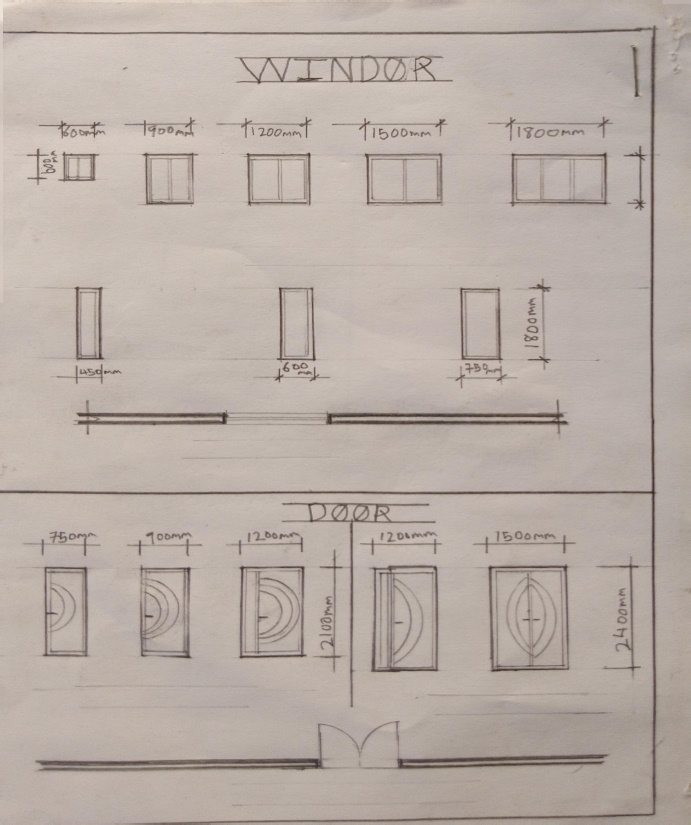 WINDØR
600mm 900mm 1200mm 1500mm 1800mm
600mm
1800mm
450mm 600mm 750mm
DØØR
750mm 900mm 1200mm 1200mm 1500mm
2100mm 2400mm